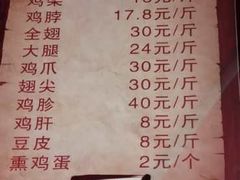 鸡脖 17.8元/斤
全翅 30元/斤
大腿 24元/斤
鸡爪 30元/斤
翅尖 30元/斤
鸡胗 40元/斤
鸡肝 8元/斤
豆皮 8元/斤
熏鸡蛋 2元/个